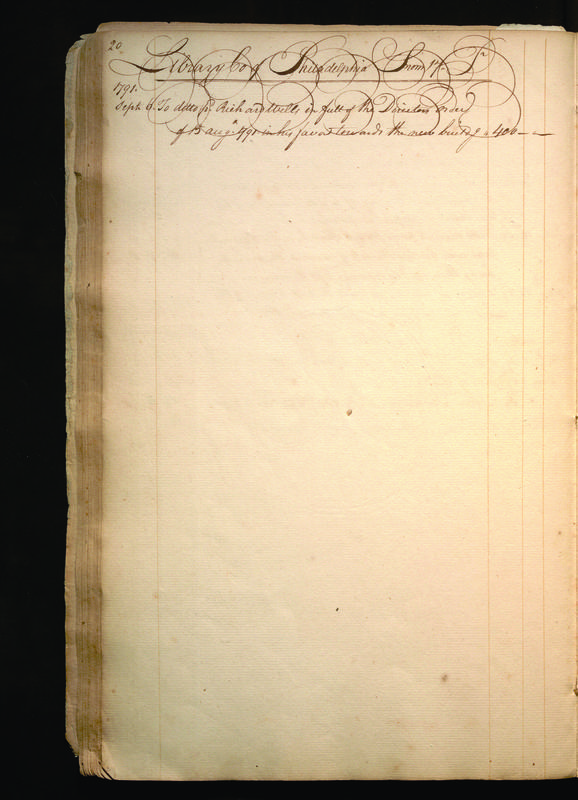 20
Library Co of Philadelphia from 17. Dr
1791.
Septr 6 To do to pd. Richard Wells in full of the Directors order
of 15 augt. 1791 in his favor towards the new build.g 400 — —